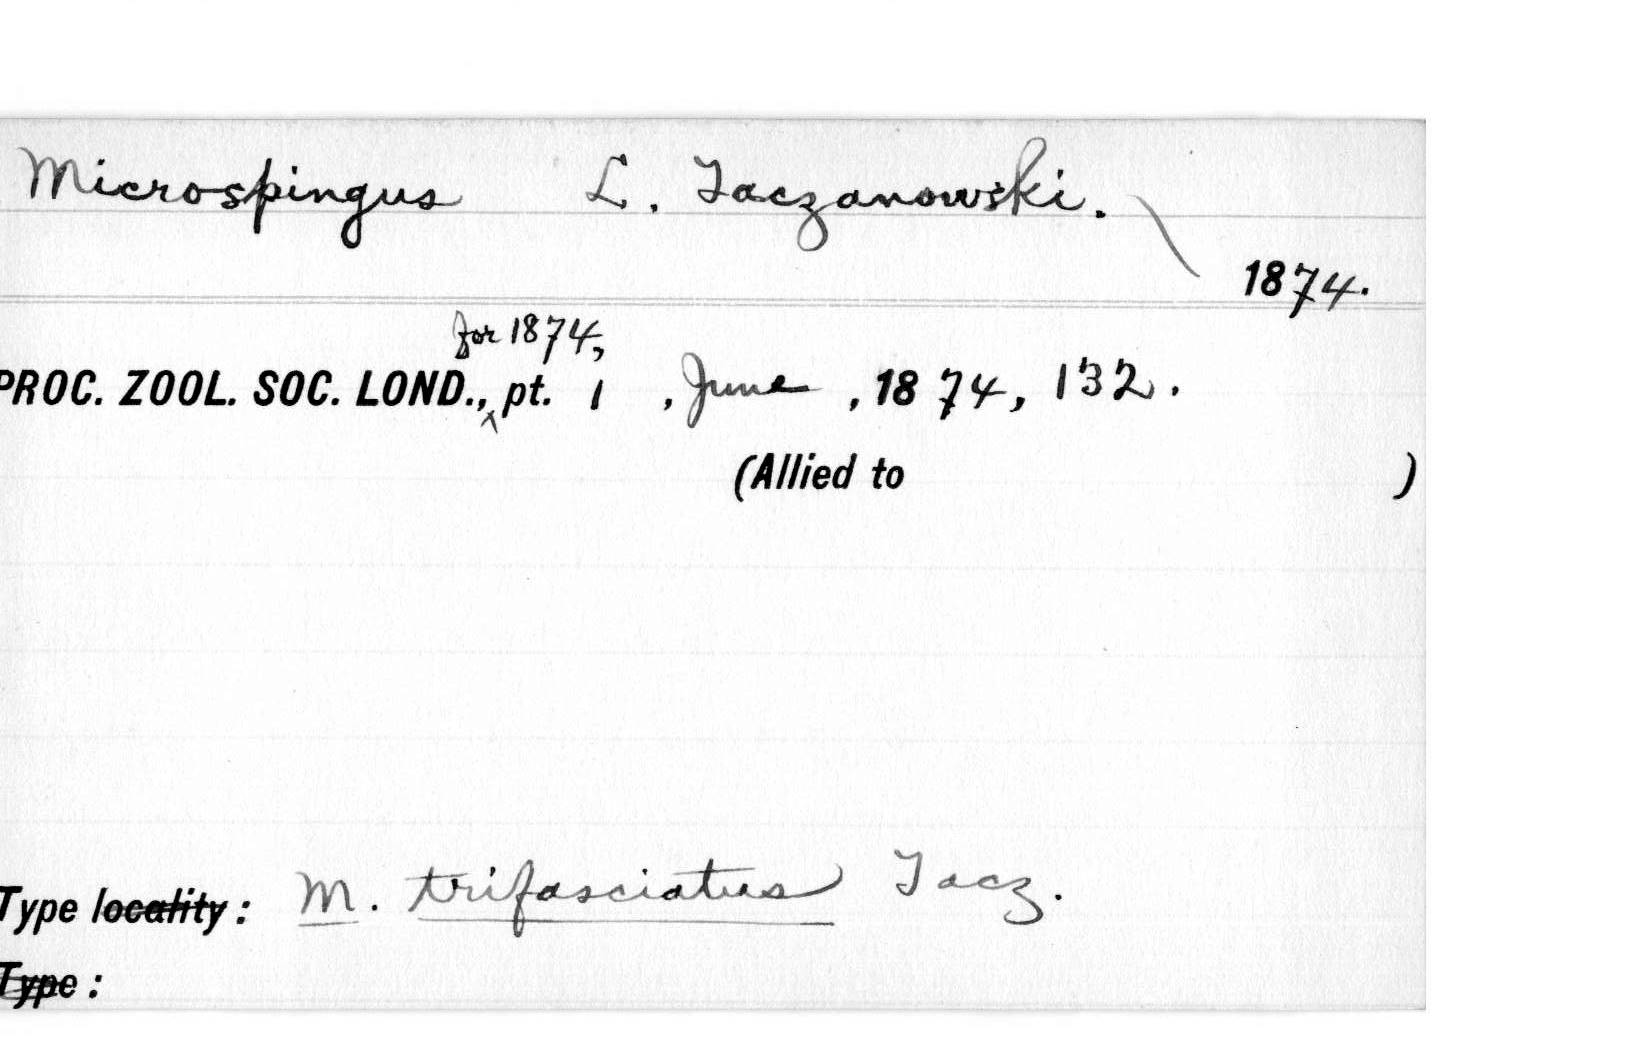 Microspingus L. Taczanowski.
1874.
for 1874,
PROC. ZOOL. SOC. LOND., pt. 1, June, 1874, 132.
(Allied to )
Type locality: M. trifasciatus Tacz.
Type: